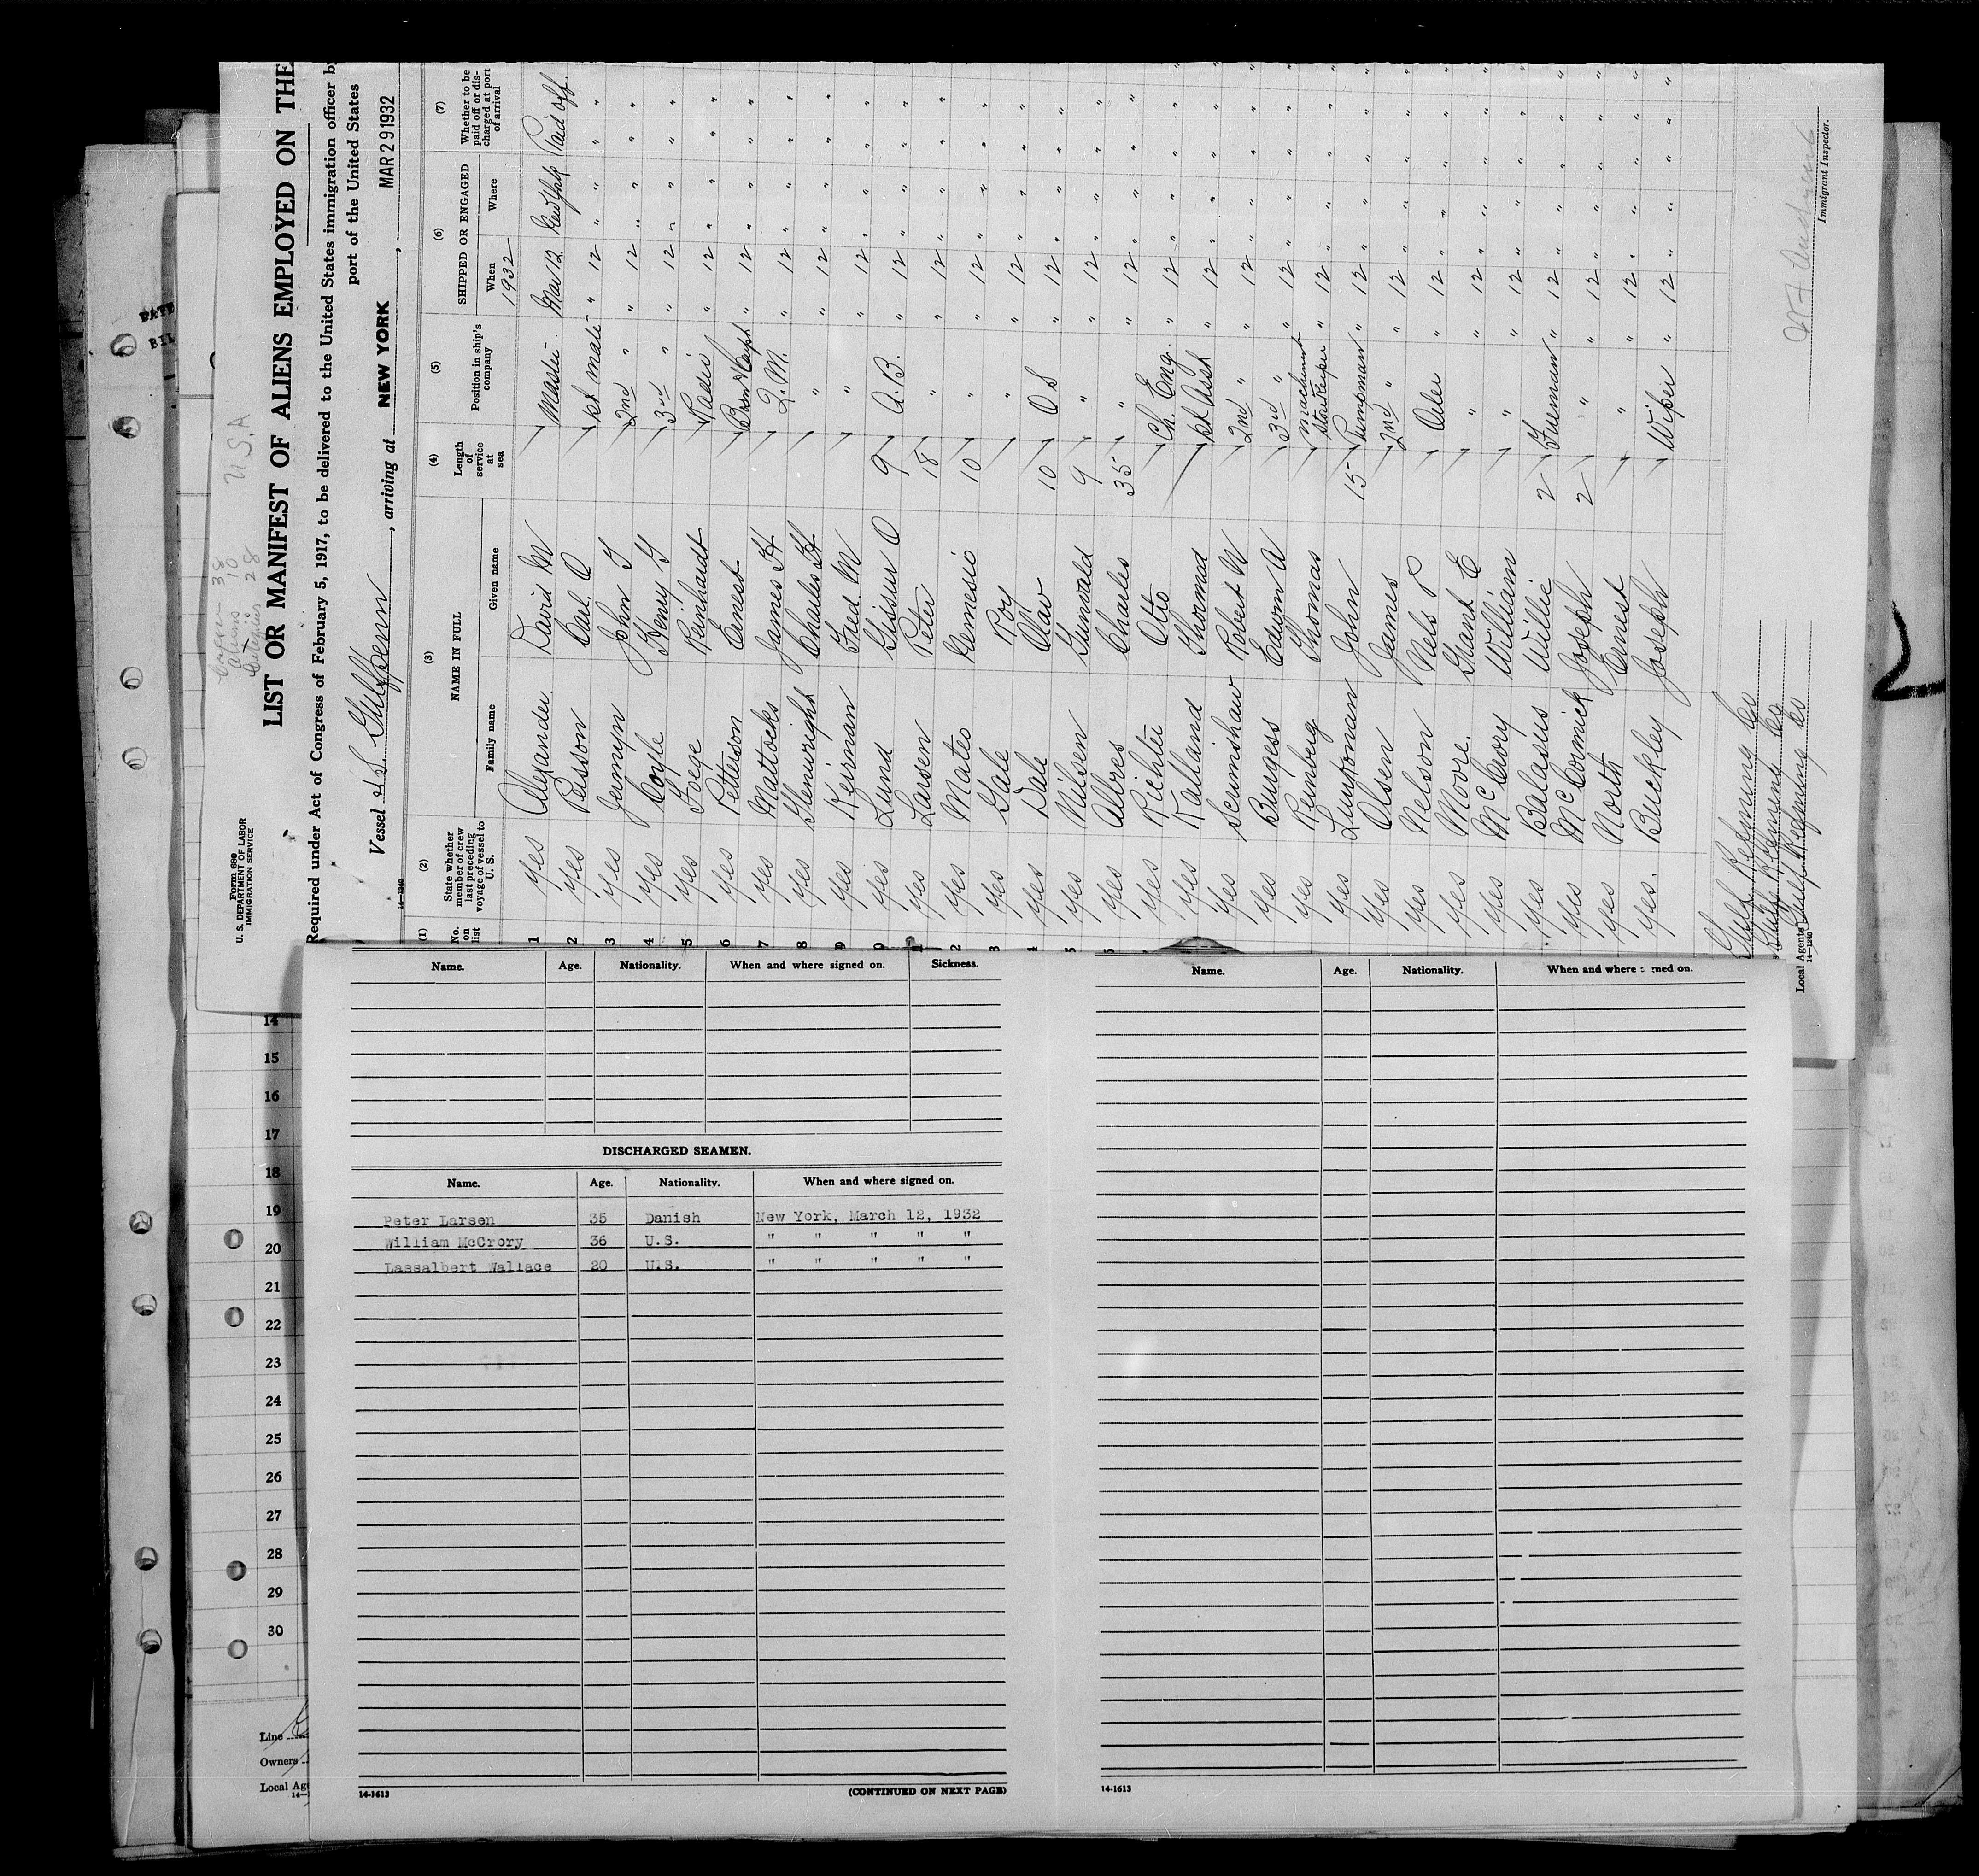 Form 680
U. S. DEPARTMENT OF LABOR
IMMIGRATION SERVICE
38
Aliens 10
28
U.S.A
LIST OR MANIFEST OF ALIENS EMPLOYED ON THE
Required under Act of Congress of February 5, 1917, to be delivered to the United States immigration officer by
port of the United States
Vessel S.S. Gulfpenn, arriving at NEW YORK, MAR 29 1932
14-1240
(1) (2) (3) (4) (5) (6) (7)
No. on list
State whether member of crew last preceding voyage of vessel to U. S.
NAME IN FULL
Family name
Given name
Length of service at sea
Position in ship's company
SHIPPED OR ENGAGED
When
Where
Whether to be paid off or discharged at port of arrival
1932
1 yes Alexander David W Master Mar 12 Paid off
2 yes Persson Carl O 1st mate " 12 " " " "
3 yes Jermayn John T 2nd " " 12 " " " "
4 yes Coyle Henry G 3rd " " 12 " " " "
5 yes Foege Reinhardt Radio " 12 " " " "
6 yes Petterson Ernest " 12 " " " "
7 yes Mattocks James H Q.M. " 12 " " " "
8 yes Glenwright Charles H " " 12 " " " "
9 yes Keirnan Fred. M " " 12 " " " "
0 yes Lund Gissur O 9 A.B. " 12 " " " "
1 yes Larsen Peter 18 " " 12 " " " "
2 yes Mateo Nemesio 10 " " 12 " " " "
3 yes Gale Roy " " 12 " " " "
4 yes Dale Olav 10 O S " 12 " " " "
5 yes Nilsen Gunvald 9 " " 12 " " " "
yes Albres Charles 35 " " 12 " " " "
yes Richter Otto Ch. Eng. " 12 " " " "
yes Kalland Thormod 1st Asst " 12 " " " "
yes Scrimshaw Robert W 2nd " " 12 " " " "
yes Burgess Edwin A 3rd " " 12 " " " "
yes Reinberg Thomas Machinist Storekeeper " 12 " " " "
yes John 15 Pumpman " 12 " " " "
yes Olsen James 2nd " " 12 " " " "
yes Nelson Nels P Oiler " 12 " " " "
yes Moore. Grant E " " 12 " " " "
yes McCrory William " " 12 " " " "
yes Balasus Willie 2 Fireman " 12 " " " "
yes McCormick Joseph 2 " " 12 " " " "
yes North Ernest " " 12 " " " "
yes. Buckley Joseph Wiper " 12 " " " "
Gulf Refining Co
Gulf Refining Co
Local Agents Gulf Refining Co
14-1240
Immigrant Inspector.
2
Name. Age. Nationality. When and where signed on. Sickness.
DISCHARGED SEAMEN.
Name. Age. Nationality. When and where signed on.
Peter Larsen 35 Danish New York, March 12, 1932
William McCrory 36 U.S. " " " " "
Lassalbert Wallace 20 U.S. " " " " "
14-1613
(CONTINUED ON NEXT PAGE)
Name. Age. Nationality. When and where signed on.
14-1613
14
15
16
17
18
19
20
21
22
23
24
25
26
27
28
29
30
Line
Owners
Local Ag